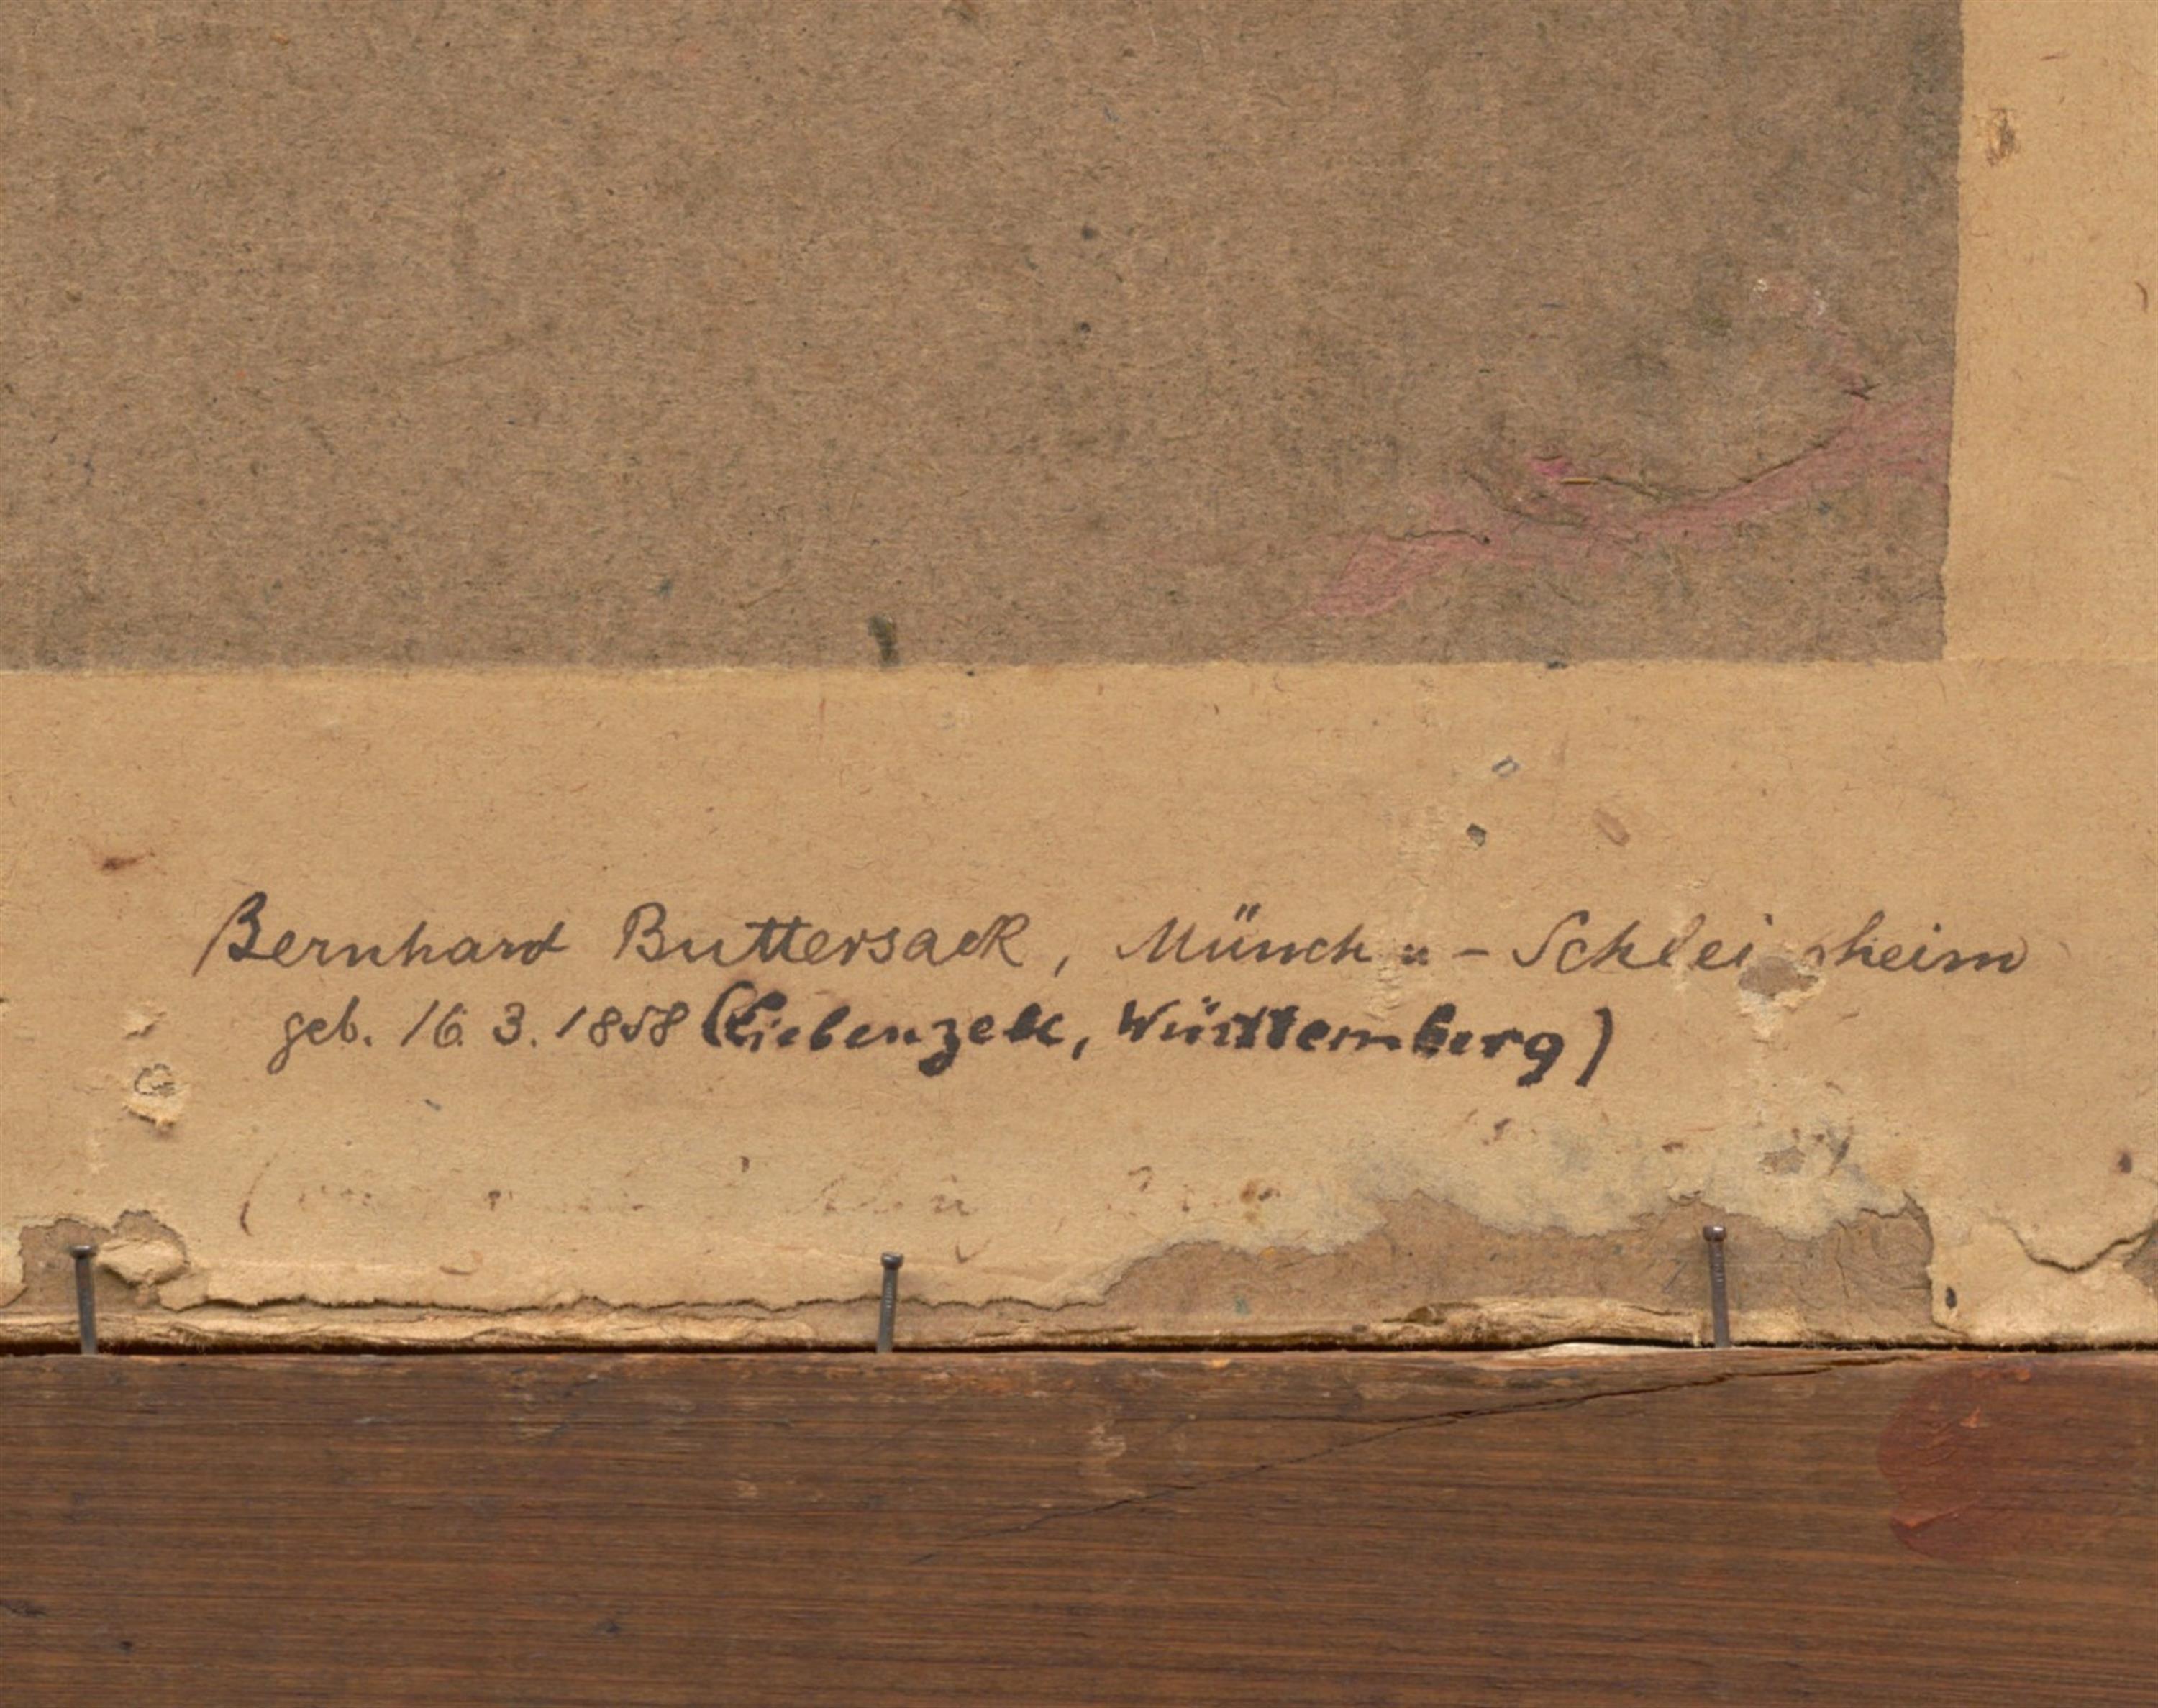 Bernhard Buttersack, Münch n - Schlei sheim
geb. 16. 3. 1858 (Liebenzell, Württemberg)